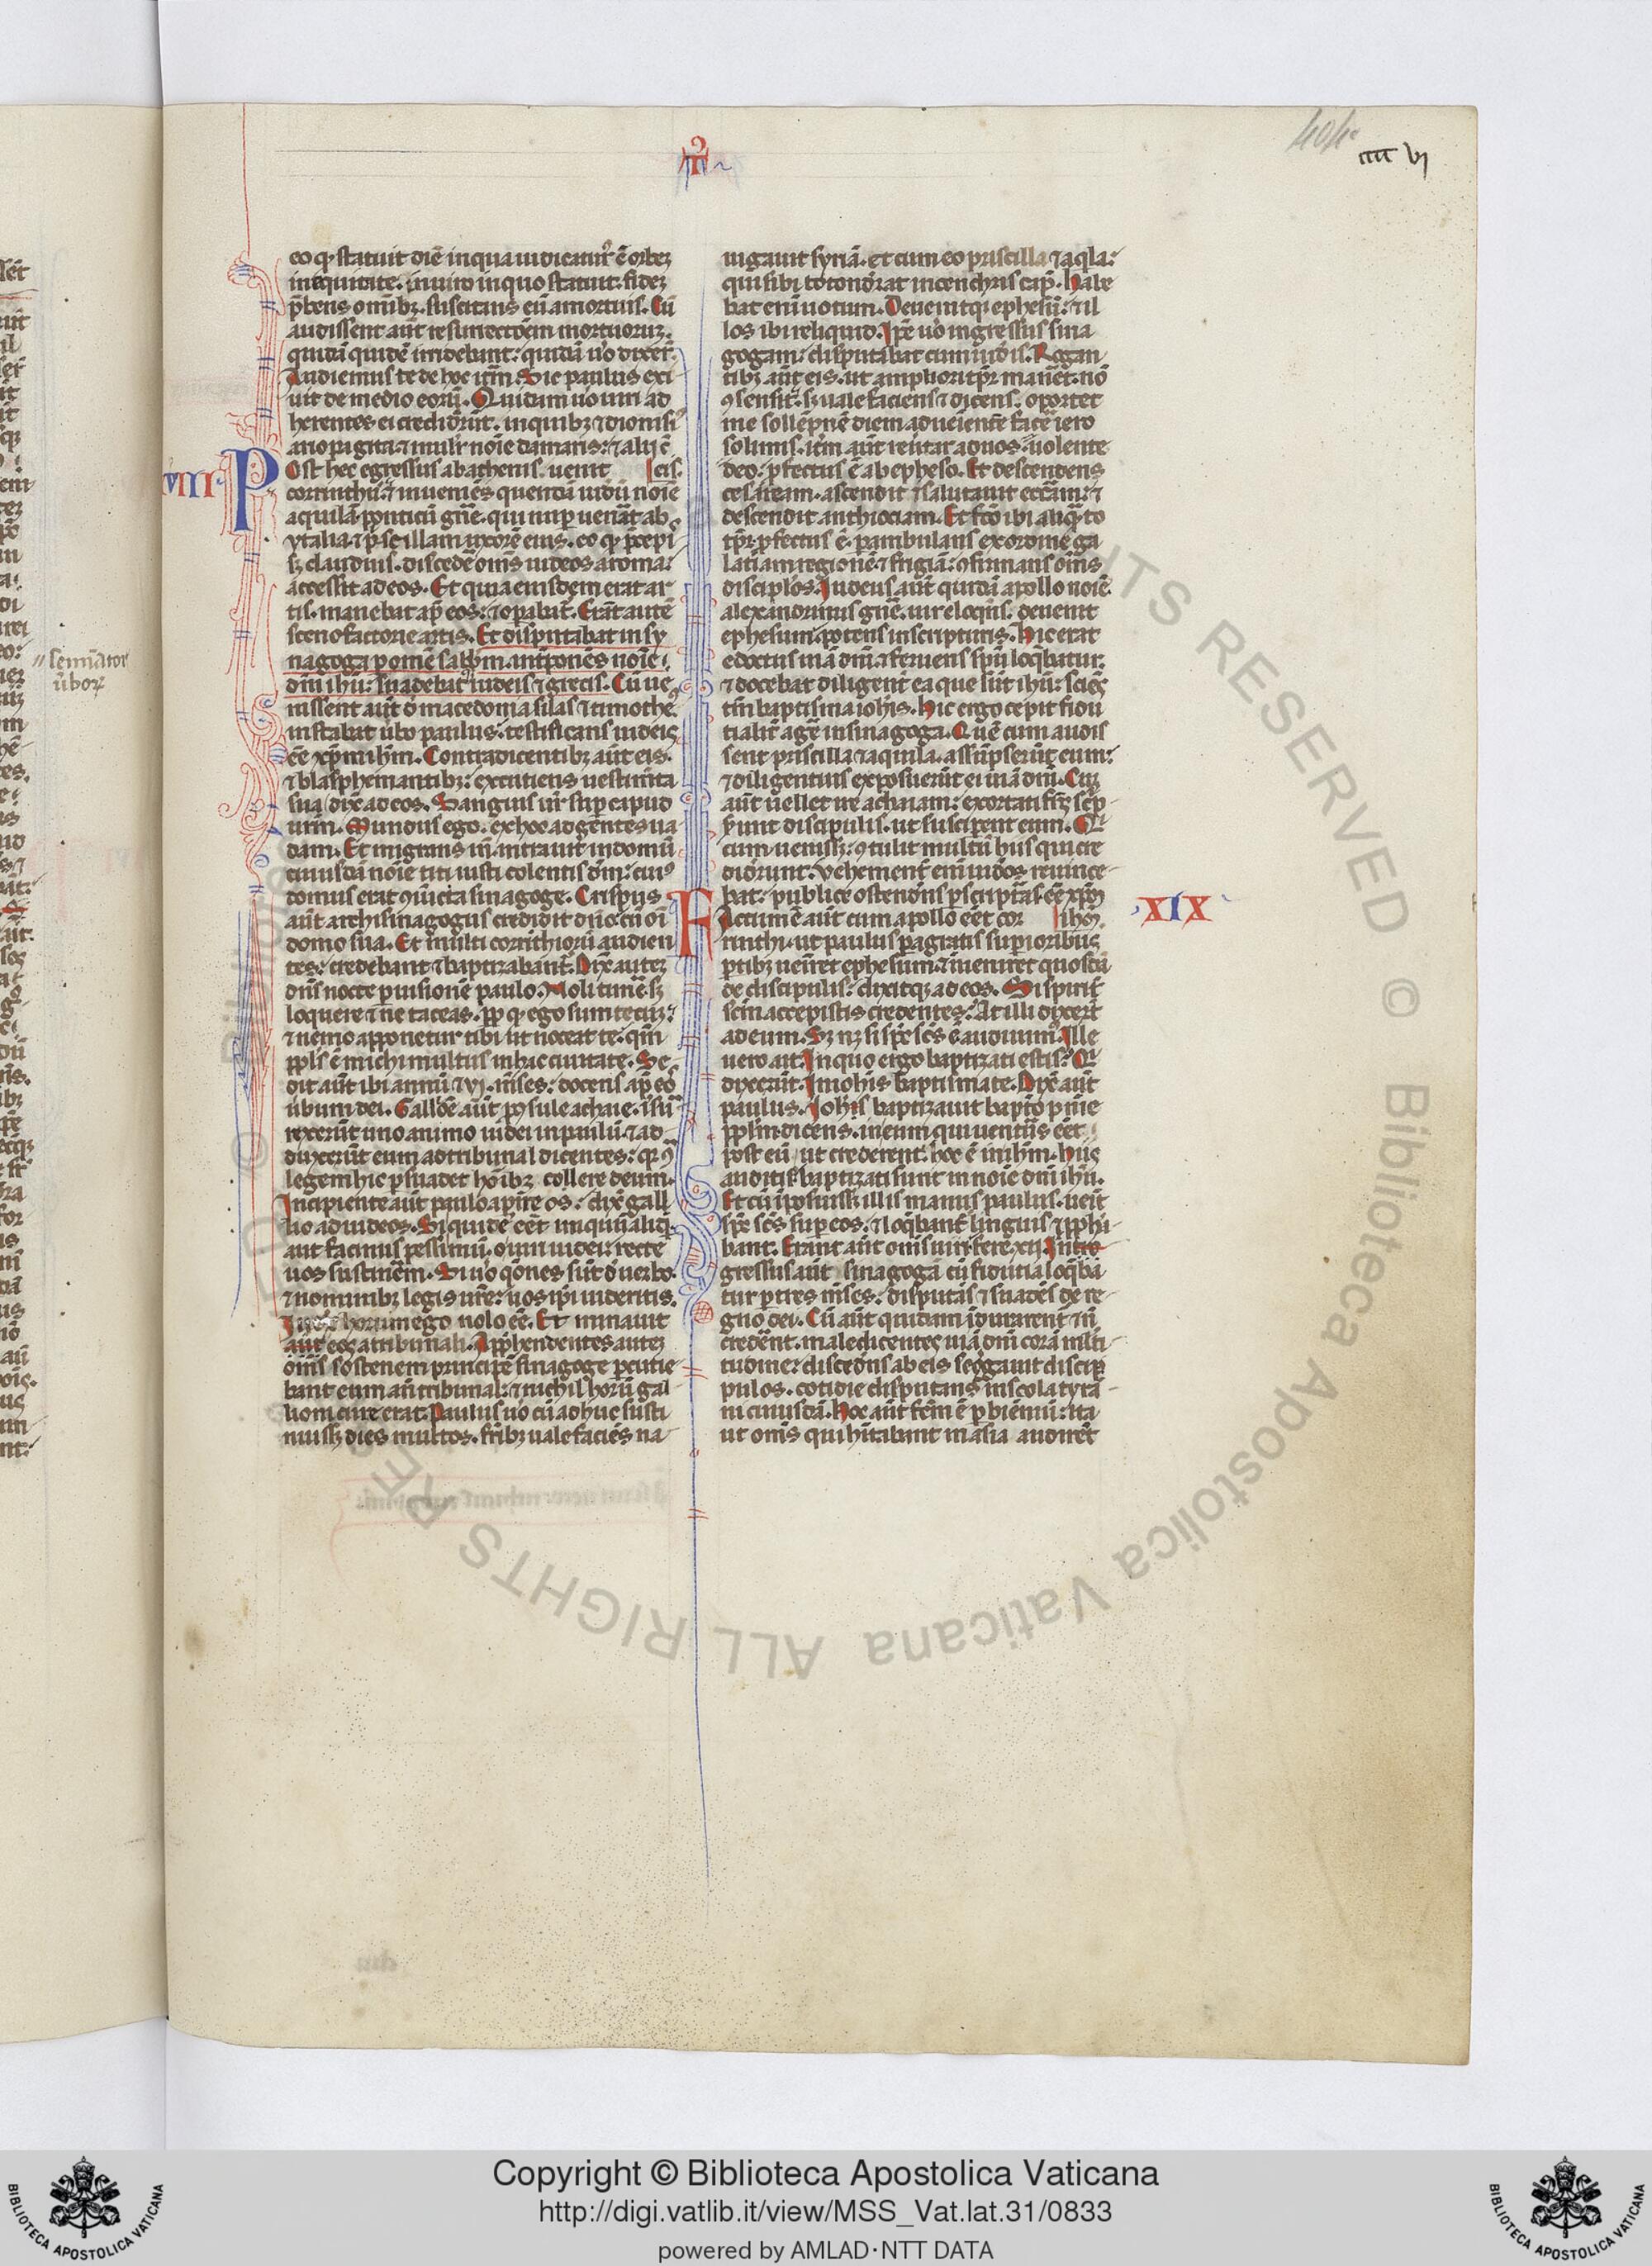 404
IIII VI
T
eo qͥ statuit diē in qua iudicatur' ē orbeʒ
in equitate. in uiro in quo statuit. fideʒ
p̄bens omībʒ. suscitans eū a mortuis. Cū
audissent aūt resurrectōem mortuoruʒ.
quidā quidē irridebant: quidā ūo dixer̄t.
Audiemus te de hoc iteʒ. Sic paulus exi
uit de medio eorū. Quidam uo uiri ad
herentes ei credid'unt. in quibʒ ⁊ dionisiꝰ
ariopagita ⁊ mulr̄ noīe damaris: ⁊ alij c̄
VIII
Post hec egressus ab athenis. uenit cis.
corinthū. ⁊ inueniēs quendā iudeū noīe
aquilā ponticū gn̄e. qui nup̄ uen̄at ab
ytalia. ⁊ p̄scillam uxorē eius. eo qͥ p̄cepi
sʒ claudius. discedē oīns iudeos a roma:
accessit ad eos. Et quia eiusdem erat ar
tis. manebat ap̄ eos: ⁊ opabat'. Erāt autē
scenofactorie artis. Et disputabat in sy
nagoga p omē sabbm. intp̄onēs noīe
dn̄i ihū: suadebat iudeis ⁊ grecis. Cū ue
nissent aūt d macedonia silas ⁊ timotheꝰ
instabat ūbo paulus. testificans iudeis
eē xp̄m ihm̄. Contradicentibʒ aūt eis.
⁊ blasphemantibʒ: excutiens uestim̄ta
sua dix̄ ad eos. Sanguis ur̄ sup caput
urm̄. Mundus ego. ex hoc ad gentes ua
dam. Et migrans in̄. intrauit in domū
cuiusdā noīe titi iusti colentis dm̄: cuiꝰ
domus erat ꝯiūcta sinagoge. Crispus
aūt archisinagogus credidit dn̄o: cū oī
domo sua. Et multi corinthiorū audien
tes: credebant ⁊ baptizabant'. Dix̄ auteʒ
dn̄s nocte p uisionē paulo. Noli timē sʒ
loquere ⁊ ne taceas. pp̄ qͥ ego sum tecuʒ:
⁊ nemo apponetur tibi ut noceat te. qm̄
ppls̄ ē michi multus in hac ciuitate. Se
dit aūt ibi annū ⁊ vi. mses: docens ap̄ eos
ūbum dei. Gallōe aūt ꝓsule achaie. isur
rexerūt uno animo iudei in paulū ⁊ ad
duxerūt eum ad tribunal dicentes: qr ꝯͣ
legem hic p̄suadet hoībʒ collere deum.
Incipiente aūt paulo apīre os: dix̄ gall
lio ad iudeos. Si quidē eēt iniquū aliqͥd
aut facinus pessimū. o uiri iudei: recte
uos sustinēm. Si uo q̄ones sūt d uerbo
⁊ nominibʒ legis ur̄e: uos ip̄i uideritis.
Iudex horum ego nolo eē. Et minauit
aūt eos a tribunali. Apphendentes auteʒ
oīns sostenem principē sinagoge p̄cutie
bant eum an̄ tribunal: ⁊ nichil horū gal
lioni cure erat. Paulus uo cū adhuc susti
nuissʒ dies multos. frībʒ uale faciēs na
uigauit syriā. et cum eo priscilla ⁊ aqͥla:
qui sibi totond'at in cenchris cap̄. Habe
bat enī uotum. Deuenitqʒ ephesū: ⁊ il
los ibi reliquid. Ip̄e uo ingressus sina
gogam: disputabat cum iud'is. Rogan
tibʒ aūt eis. ut ampliori tp̄r manēt. nō
ꝯsensit. sʒ uale faciens ⁊ dicens. oportet
me sollēpnē diem aduēientē facē iero
solimis. itm̄ aūt reūtar ad uos. uolente
deo: pfectus ē ab epheso. Et descendens
cesaream. ascendit ⁊ salutauit eccl̄am: ⁊
descendit anthiociam. Et fc̄o ibi aliqͣto
tp̄r. pfectus ē. pambulans ex ordine ga
latiam regionē ⁊ frigiā: ꝯfirmans oīns
discipl'os. Iudeus aūt quidā apollo noīe.
alexandrinus gn̄e. uir eloqns. deuenit
ephesum. potens in scripturis. Hic erat
edoctus uiā dn̄i. ⁊ feruens sp̄u loqͥbatur.
⁊ docebat diligent' ea que sūt ihū: sciēs
tm̄ baptisma ioh'is. Hic ergo cepit fidu
tialit' agē in sinagoga. Quē cum audis
sent priscilla ⁊ aquila. assūpserūt eum:
⁊ diligentius exposuerūt ei uiā dn̄i. Cuʒ
aūt uellet ire achaiam: exortati fr̄s sc̄p
s'unt discipulis. ut suscip̄ent eum. Qͥ
cum uenissʒ: ꝯtulit multū hijs qui cre
did'unt. Vehement' enī iudeos reuince
bat: publice ostend'ns p sc̄ptͣs. eē xp̄m
XIX
Factum ē aūt cum apollo eēt cor ihm̄.
rinthi. ut paulus pagratis supioribus
p̄tibʒ uenīret ephesum. ⁊ inueniret quosdā
de discipulis: dixitqʒ ad eos. Si spirit'
sc̄m accepistis credentes? At illi dixer̄t
ad eum. Sʒ nʒ si sp̄r sc̄s ē audiuim'. Ille
uero ait. In quo ergo baptizati estis? Qͥ
dixerūt. In ioh'is baptismate. Dix̄ aūt
paulus. Ioh'is baptizauit bapt̄o pn̄ie
pplm̄. dicens. in eum qui uentur's eēt
post eū ut crederent. hoc ē in ihm̄. Hijs
auditis baptizati sunt in noīe dn̄i ihū.
Et cū īposuissʒ illis manus paulus. uenit
sp̄r sc̄s sup eos. ⁊ loqͥbant' linguis ⁊ pph̄a
bant. Erant aūt om̄s uiri fere xij. Intro
gressus aūt sinagogā cū fidutia loqͥba
tur p tres mses. disputās ⁊ suadēs de re
gno dei. Cū aūt quidam idurarent' ⁊ n̄
cred'ent. maledicentes uiā dn̄i corā mlti
tudine: disced'ns ab eis seḡgauit disci
pulos. cotidie disputans in scola tyrā
ni cuiusdā. Hoc aūt fcm̄ ē p bienniū: ita
ut om̄s qui h'itabant in asia audirēt
semīator
ūborꝝ
Copyright © Biblioteca Apostolica Vaticana
http://digi.vatlib.it/view/MSS_Vat.lat.31/0833
powered by AMLAD·NTT DATA
BIBLIOTECA APOSTOLICA VATICANA
BIBLIOTECA APOSTOLICA VATICANA
© Biblioteca Apostolica Vaticana ALL RIGHTS RESERVED